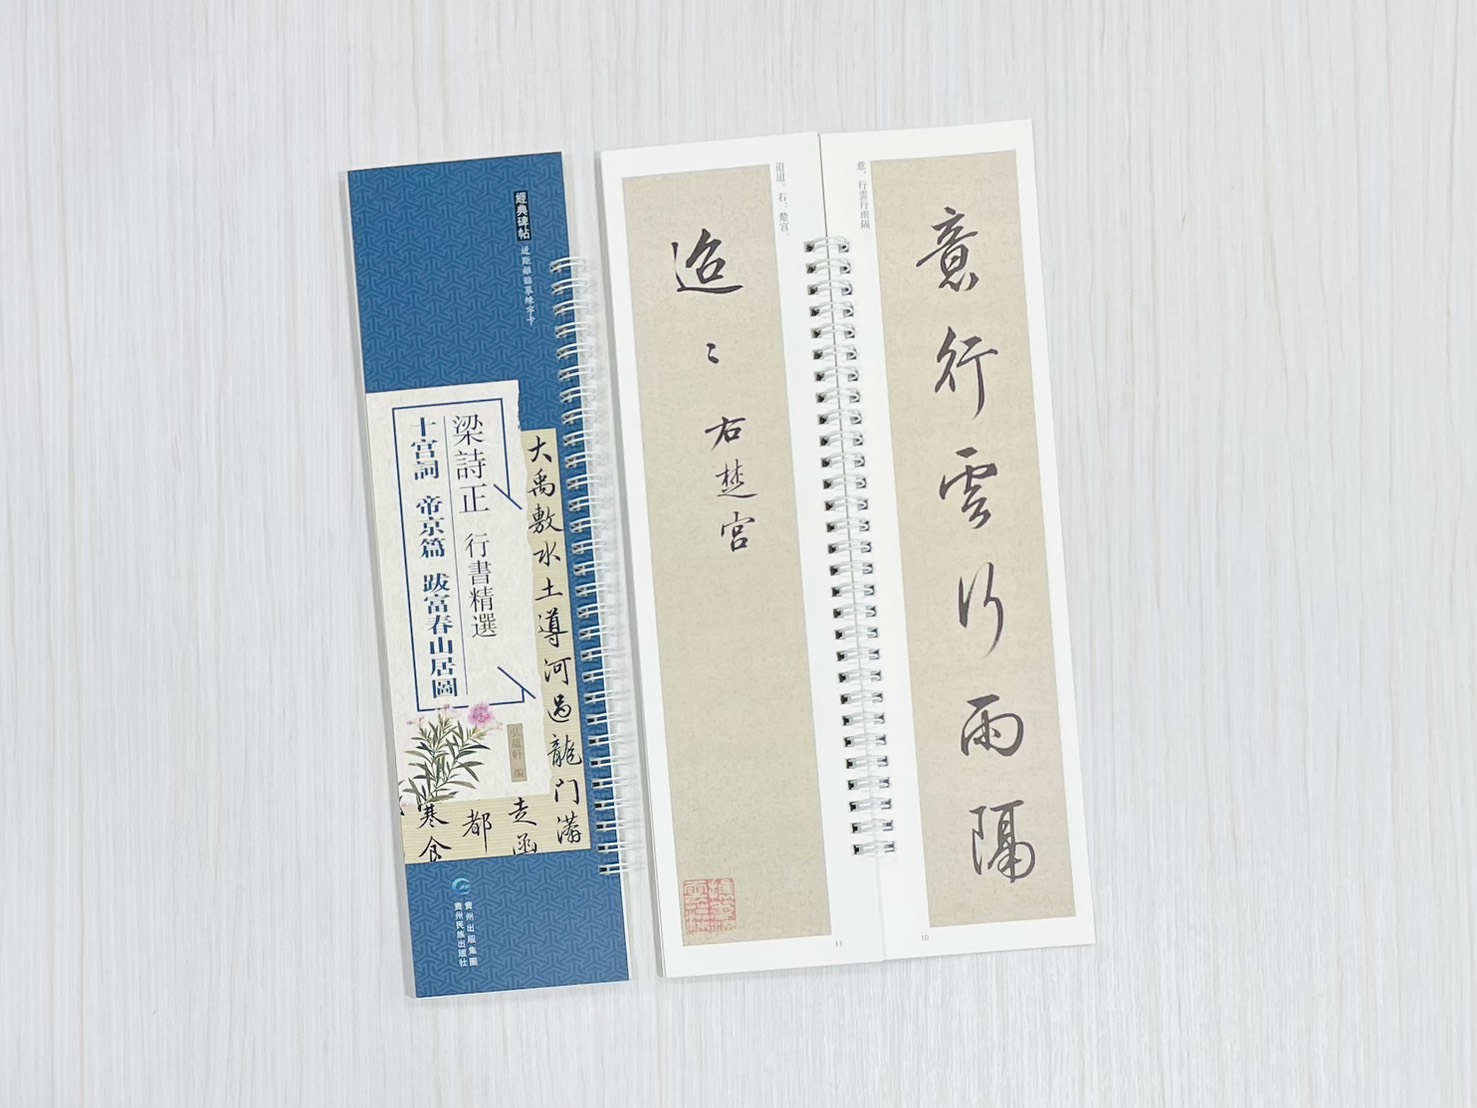 經典碑帖 近距離臨摹練字卡
梁詩正 行書精選
十宮詞 帝京篇 跋富春山居圖
弘蘊軒 編
大禹敷水土導河過龍门满
走函
都
寒食
貴州出版集團
貴州民族出版社
意。行雲行雨隔
意行雲行雨隔
10
迢迢。右。楚宮。
迢〻右楚宮
11